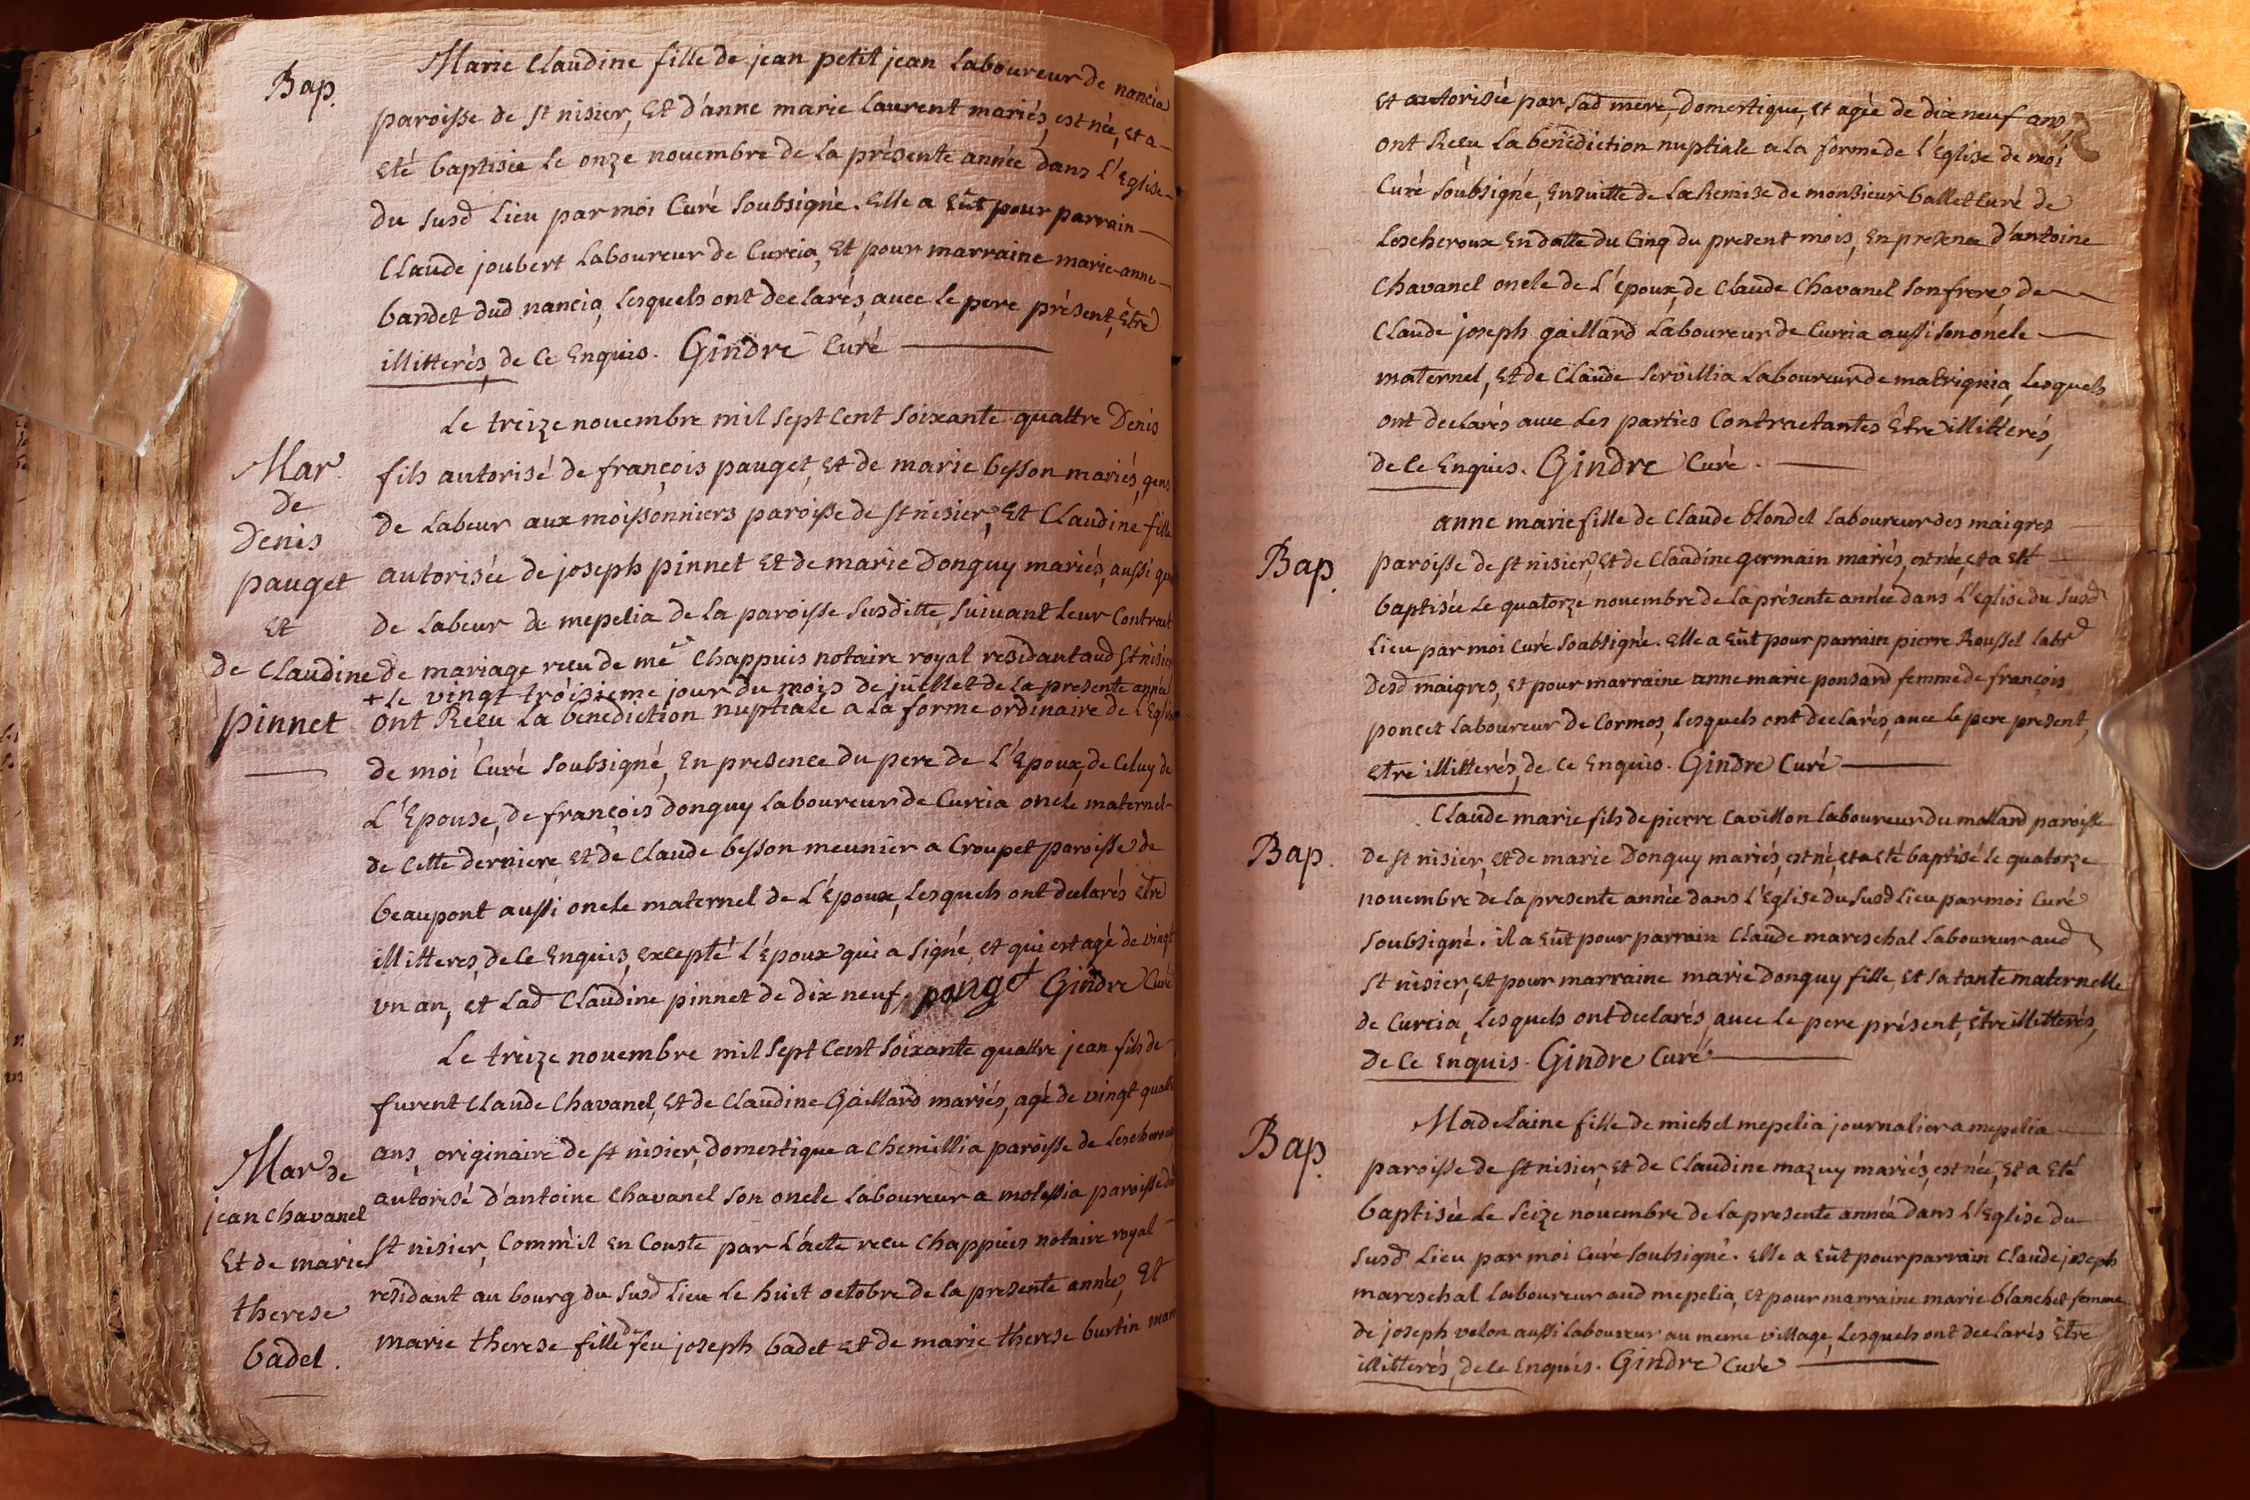 Bap.
Marie Claudine fille de jean petit jean Laboureur de nancia
paroisse de st nisier, Et d'anne marie Laurent mariés, est née, et a
Eté baptisée Le onze novembre de La présente année dans L'Eglise
du susd Lieu par moi Curé soubsigné. Elle a Eüt pour parrain
Claude joubert Laboureur de Curcia, Et pour marraine marie anne
bardet dud nancia, Lesquels ont declarés, avec Le pere présent, Etre
illitterés, de Ce Enquis. Gindre Curé
Le treize novembre mil sept Cent soixante quattre Denis
Mar de Denis pauget Et de Claudine pinnet
fils autorisé de françois pauget, Et de marie besson mariés, gens
de Labeur aux moissonniers paroisse de st nisier, Et Claudine fille
autorisée de joseph pinnet Et de marie Donguy mariés, aussi
de Labeur de mepelia de La paroisse susditte, suivant Leur Contract
de mariage recu de me Chappuis notaire royal residant aud st nisier
+ Le vingt troisieme jour du mois de juillet de La presente année
ont Recu La benediction nuptiale a La forme ordinaire de L'Eglise
de moi Curé soubsigné, En presence du pere de L'Epoux, de Celuy de
L'Epouse, de françois donguy Laboureur de Curcia oncle maternel
de Cette derniere, Et de Claude besson meunier a Croupet paroisse de
beaupont aussi oncle maternel de L'Epoux, Lesquels ont declarés Etre
illitteres, de Ce Enquis, excepté L'Epoux qui a signé, et qui est agé de vingt
un an, et Lad Claudine pinnet de dix neuf. pauget Gindre Curé
Le treize novembre mil sept Cent soixante quattre jean fils de
furent Claude Chavanel, Et de Claudine Gaillard mariés, agé de vingt quatre
Mar de jean Chavanel Et de marie therese badel.
ans, originaire de st nisier, domestique a Chemillia paroisse de Lescheroux
autorisé d'antoine Chavanel son oncle Laboureur a molassia paroisse de
st nisier, Comm'il En Couste par L'acte recu Chappuis notaire royal
residant au bourg du susd Lieu Le huit octobre de La presente année, Et
marie therese fille de feu joseph badet Et de marie therese burtin
Et autorisée par sad mere, domestique, Et agée de dix neuf ans,
ont Recu La benediction nuptiale a La forme de L'Eglise de moi
Curé soubsigné, Ensuitte de La Remise de monsieur ballet Curé de
Lescheroux En datte du Cinq du present mois, En presence d'antoine
Chavanel oncle de L'Epoux, de Claude Chavanel son frere, de
Claude joseph gaillard Laboureur de Curcia aussi son oncle
maternel, Et de Claude servillia Laboureur de matrignia, Lesquels
ont declarés avec Les parties Contractantes Etre illitterés,
de Ce Enquis. Gindre Curé.
Bap.
anne marie fille de Claude blondel Laboureur des maigres
paroisse de st nisier, Et de Claudine germain mariés, est née, et a eté
baptisée Le quatorze novembre de La présente année dans L'Eglise du susd
Lieu par moi Curé soubsigné. Elle a Eüt pour parrain pierre Roussel labr
desd maigres, Et pour marraine anne marie ponsard femme de françois
poncet Laboureur de Cormos, Lesquels ont declarés, avec Le pere present,
Etre illitterés, de Ce Enquis. Gindre Curé
Bap.
Claude marie fils de pierre Cavillon Laboureur du mollard paroisse
de st nisier, et de marie Donguy mariés, est né, et a eté baptisé le quatorze
novembre de La presente année dans L'Eglise du susd Lieu par moi Curé
soubsigné. il a Eüt pour parrain Claude mareschal Laboureur aud
st nisier, Et pour marraine marie donguy fille, Et sa tante maternelle
de Curcia, Lesquels ont declarés, avec Le pere présent, Etre illitterés,
de Ce Enquis. Gindre Curé
Bap.
Madelaine fille de michel mepelia journalier a mepelia
paroisse de st nisier, Et de Claudine mazuy mariés, est née, et a Eté
baptisée Le seize novembre de La presente année dans L'Eglise du
susd Lieu par moi Curé soubsigné. Elle a Eüt pour parrain Claude joseph
mareschal Laboureur aud mepelia, et pour marraine marie blanchet femme
de joseph velon aussi Laboureur au meme village, Lesquels ont declarés Etre
illitterés, de Ce Enquis. Gindre Curé